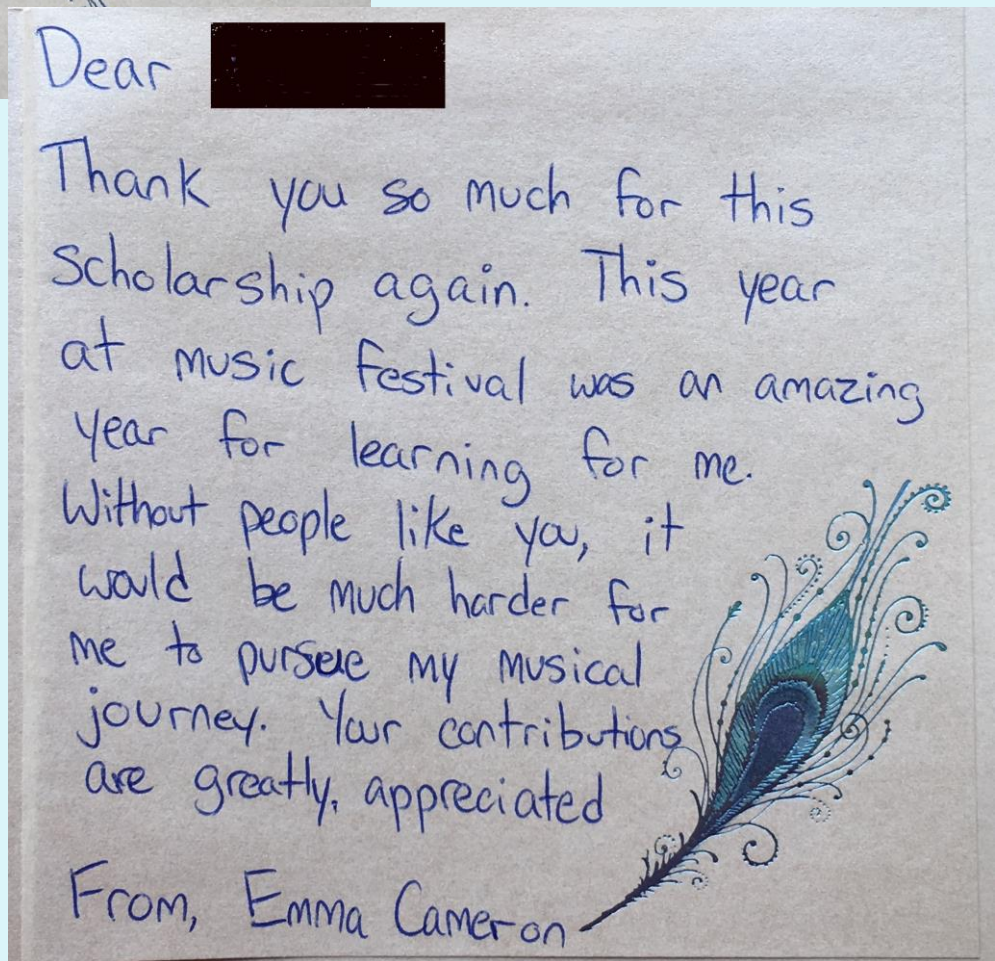 Dear
Thank you so much for this
scholarship again. This year
at music festival was an amazing
year for learning for me.
Without people like you, it
would be much harder for
me to pursue my musical
journey. Your contributions
are greatly, appreciated
From, Emma Cameron